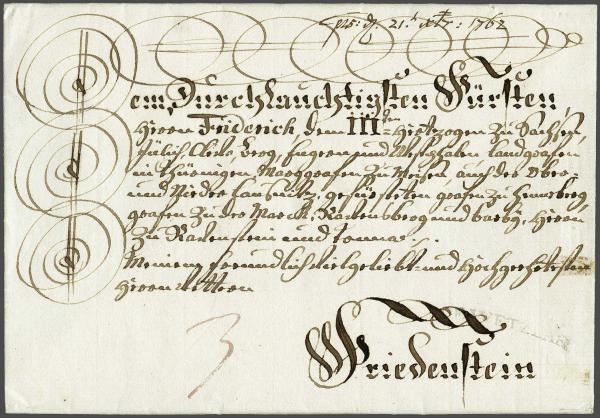 prs: d. 21.t xbr: 1762
Dem Durchlauchtigsten Fürsten,
Herrn Friderich, dem IIIten Hertzogen zu Sachsen,
Jülich, Cleve, Berg, Engern und Westphalen, Landgrafen
in Thüringen, Marggrafen zu Meißen, auch der Ober-
und Nieder Laußnitz, gefürsteten Grafen zu Henneberg,
Grafen zu der Marck, Ravensberg und Barby, Herrn
zu Ravenstein und Tonna.
Meinem freundlich vielgeliebt- und Hochgeehrtesten
Herrn Vettern
3
Friedenstein